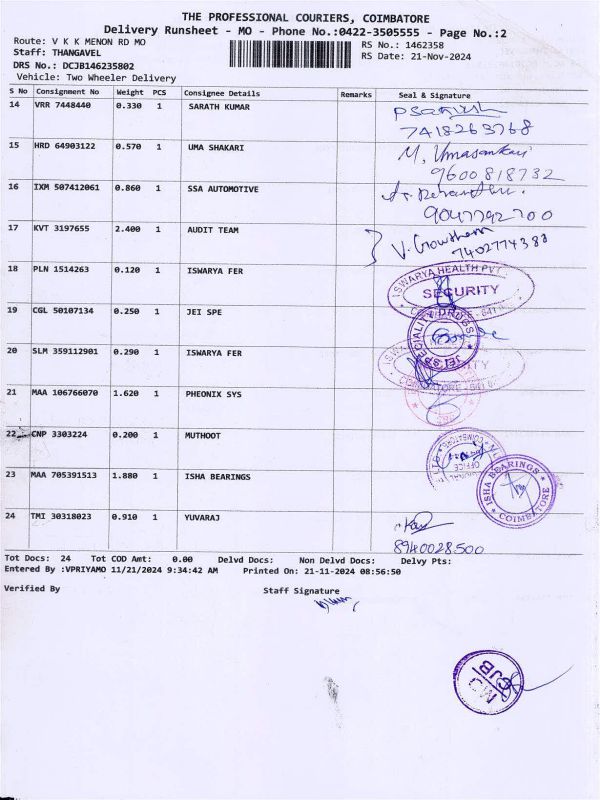 THE PROFESSIONAL COURIERS, COIMBATORE
Delivery Runsheet - MO - Phone No.:0422-3505555 - Page No.:2
Route: V K K MENON RD MO RS No.: 1462358
Staff: THANGAVEL RS Date: 21-Nov-2024
DRS No.: DCJB146235802
Vehicle: Two Wheeler Delivery
S No Consignment No Weight PCS Consignee Details Remarks Seal & Signature
14 VRR 7448440 0.330 1 SARATH KUMAR
7418263768
15 HRD 64903122 0.570 1 UMA SHAKARI M. Umasankari
9600818732
16 IXM 507412061 0.860 1 SSA AUTOMOTIVE
9047792700
17 KVT 3197655 2.400 1 AUDIT TEAM V. Gowtham
7402774388
18 PLN 1514263 0.120 1 ISWARYA FER ISWARYA HEALTH PVT
SECURITY
19 CGL 50107134 0.250 1 JEI SPE JEI SPECIALITY DRUGS
20 SLM 359112901 0.290 1 ISWARYA FER
21 MAA 106766070 1.620 1 PHEONIX SYS
22 CNP 3303224 0.200 1 MUTHOOT
23 MAA 705391513 1.880 1 ISHA BEARINGS ISHA BEARINGS
COIMBATORE
24 TMI 30318023 0.910 1 YUVARAJ
8940028500
Tot Docs: 24 Tot COD Amt: 0.00 Delvd Docs: Non Delvd Docs: Delvy Pts:
Entered By :VPRIYAMO 11/21/2024 9:34:42 AM Printed On: 21-11-2024 08:56:50
Verified By Staff Signature
CJB